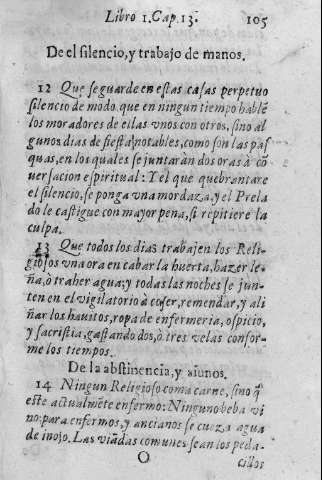 Libro 1. Cap. 13. 105
De el silencio, y trabajo de manos.
12 Que se guarde en estas casas perpetuo
silencio de modo que en ningun tiempo hablẽ
los moradores de ellas vnos con otros, sino al
gunos dias de fiestas notables, como son las pas
quas, en los quales se juntarán dos oras à cō
versacion espiritual: Y el que quebrantare
el silencio, se ponga vna mordaza, y el Prela
do le castigue con mayor pena, si repitiere la
culpa.
13 Que todos los dias trabajen los Reli-
giosos vna ora en cabar la huerta, hazer le-
ña, ò traher agua; y todas las noches se jun-
ten en el vigilatorio à coser, remendar, y ali
ñar los hauitos, ropa de enfermeria, ospicio,
y sacristia, gastando dos, ò tres velas confor-
me los tiempos.
De la abstinencia, y aiunos.
14 Ningun Religioso coma carne, sino q̃
estè actualmẽte enfermo: Ninguno beba vi
no: para enfermos, y ancianos se cueza agua
de inojo. Las viãdas comunes sean los peda-
cillos